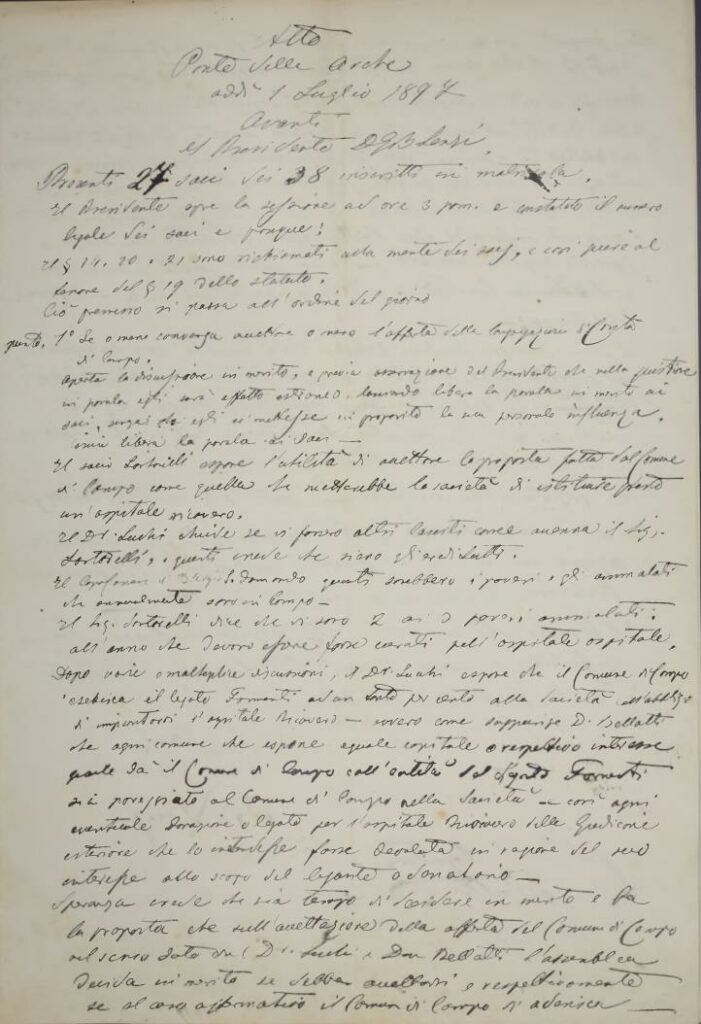 Atto
Ponte delle Arche
addì 1 Luglio 1897
Avanti
il Presidente D G B Lenzi.
Presenti 27 soci dei 38 inscritti in matricola.
Il Presidente apre la sessione ad ore 3 pom. e constatato il numero
legale dei soci e
I § 14. 20 e 21 sono richiamati alla mente dei socj, e così pure al
tenore del § 19 dello statuto.
Ciò premesso si passa all'ordine del giorno
punto. 1° Se o meno convenga accettare o meno l'offerta della Congregazione di Carità
di Campo.
Aperta la discussione in merito, e previa osservazione del Presidente che nella questione
in parola egli sarà affatto estraneo lasciando libera la parola in merito ai
soci, senza che egli ci mettesse in proposito la sua personale influenza,
libera la parola ai soci —
Il socio Sartorelli espone l'utilità di accettare la proposta fatta dal Comune
di Campo come quella che metterebbe la società di istituire presto
un'ospitale ricovero.
Il Dr Luchi chiede se vi fossero altri come accenna il Sig.
Sartorelli, e questi crede che siano gli eredi
Il domanda quanti sarebbero i poveri e gli ammalati
che annualmente sono in Campo —
Il Sig. Sartorelli dice che vi sono 2 ai 3 poveri ammalati:
all'anno che devono essere forse curati nell'ospitale ospitale.
Dopo varie e molteplici discussioni, il Dr Luchi espone che il Comune di Campo
esebisca il legato Formenti ad un tanto per cento alla Società coll'obbligo
di l'ospitale Ricovero — ovvero come suppone D. Bellatti
che ogni comune che espone eguale capitale o respettivo interesse
quale dà il Comune di Campo coll'entità del legato Formenti
sia pareggiato al Comune di Campo nella Società — così ogni
eventuale donazione o legato per l'ospitale Ricovero delle Giudicarie
esteriore che lo interesse fosse devoluto in ragione del suo
interesse allo scopo del legante o donatario —
Speranza crede che sia tempo di decidere in merito e fa
la proposta che sull'accettazione della offerta del Comune di Campo
nel senso dato dal Dr. Luchi e Don Bellatti l'assemblea
decida in merito se debba accettarsi e respettivamente
se al caso affermativo il Comune di Campo vi aderisca —